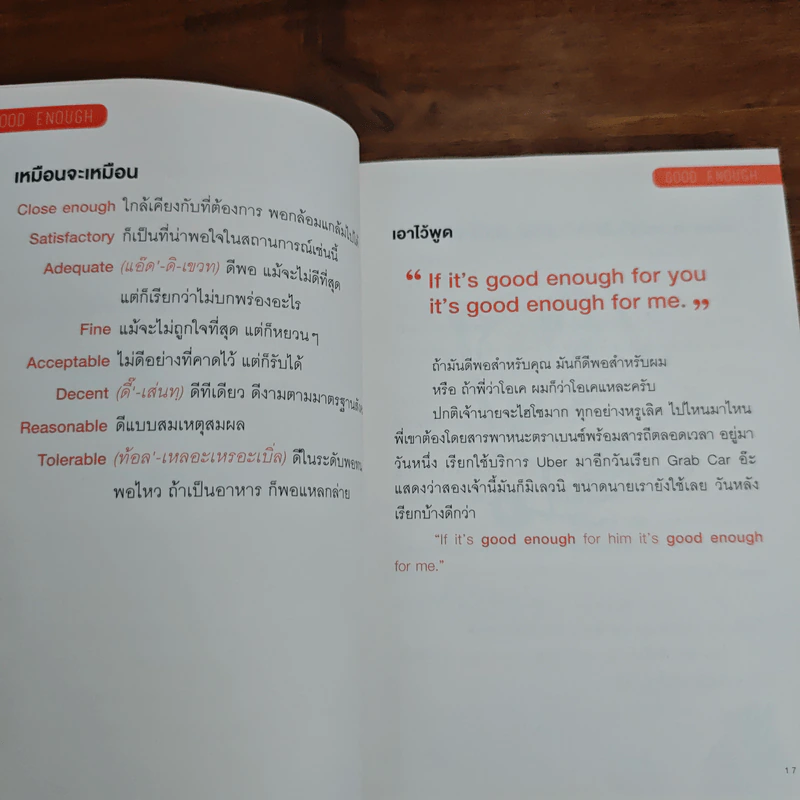 OOD ENOUGH
เหมือนจะเหมือน
Close enough ใกล้เคียงกับที่ต้องการ พอกล้อมแกล้ม
Satisfactory ก็เป็นที่น่าพอใจในสถานการณ์เช่นนี้
Adequate (แอ๊ด'-ดิ-เขวท) ดีพอ แม้จะไม่ดีที่สุด
แต่ก็เรียกว่าไม่บกพร่องอะไร
Fine แม้จะไม่ถูกใจที่สุด แต่ก็หยวนๆ
Acceptable ไม่ดีอย่างที่คาดไว้ แต่ก็รับได้
Decent (ดี๊'-เส่นทฺ) ดีทีเดียว ดีงามตามมาตรฐาน
Reasonable ดีแบบสมเหตุสมผล
Tolerable (ท้อล'-เหลอะเหรอะเบิ่ล) ดีในระดับพอทน
พอไหว ถ้าเป็นอาหาร ก็พอแหลกล่าย
GOOD ENOUGH
เอาไว้พูด
“ If it's good enough for you
it's good enough for me. ”
ถ้ามันดีพอสำหรับคุณ มันก็ดีพอสำหรับผม
หรือ ถ้าพี่ว่าโอเค ผมก็ว่าโอเคแหละครับ
ปกติเจ้านายจะไฮโซมาก ทุกอย่างหรูเลิศ ไปไหนมาไหน
พี่เขาต้องโดยสารพาหนะตราเบนซ์พร้อมสารถีตลอดเวลา อยู่มา
วันหนึ่ง เรียกใช้บริการ Uber มาอีกวันเรียก Grab Car อ๊ะ
แสดงว่าสองเจ้านี้มันก็มิเลวนิ ขนาดนายเรายังใช้เลย วันหลัง
เรียกบ้างดีกว่า
“If it's good enough for him it's good enough
for me.”
17